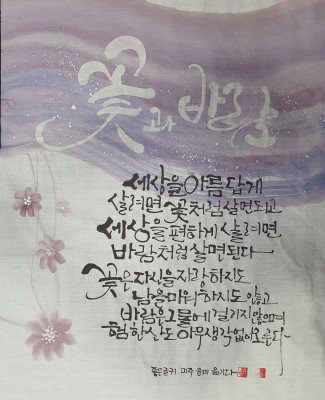 꽃과 바람
세상을 아름답게
살려면 꽃처럼 살면되고
세상을 편하게 살려면
바람처럼 살면된다~
꽃은 자신을 자랑하지도
남을 미워하지도 않고
바람은 그물에 걸리지 않으며
험한산도 아무생각없이 오른다~
좋은글귀